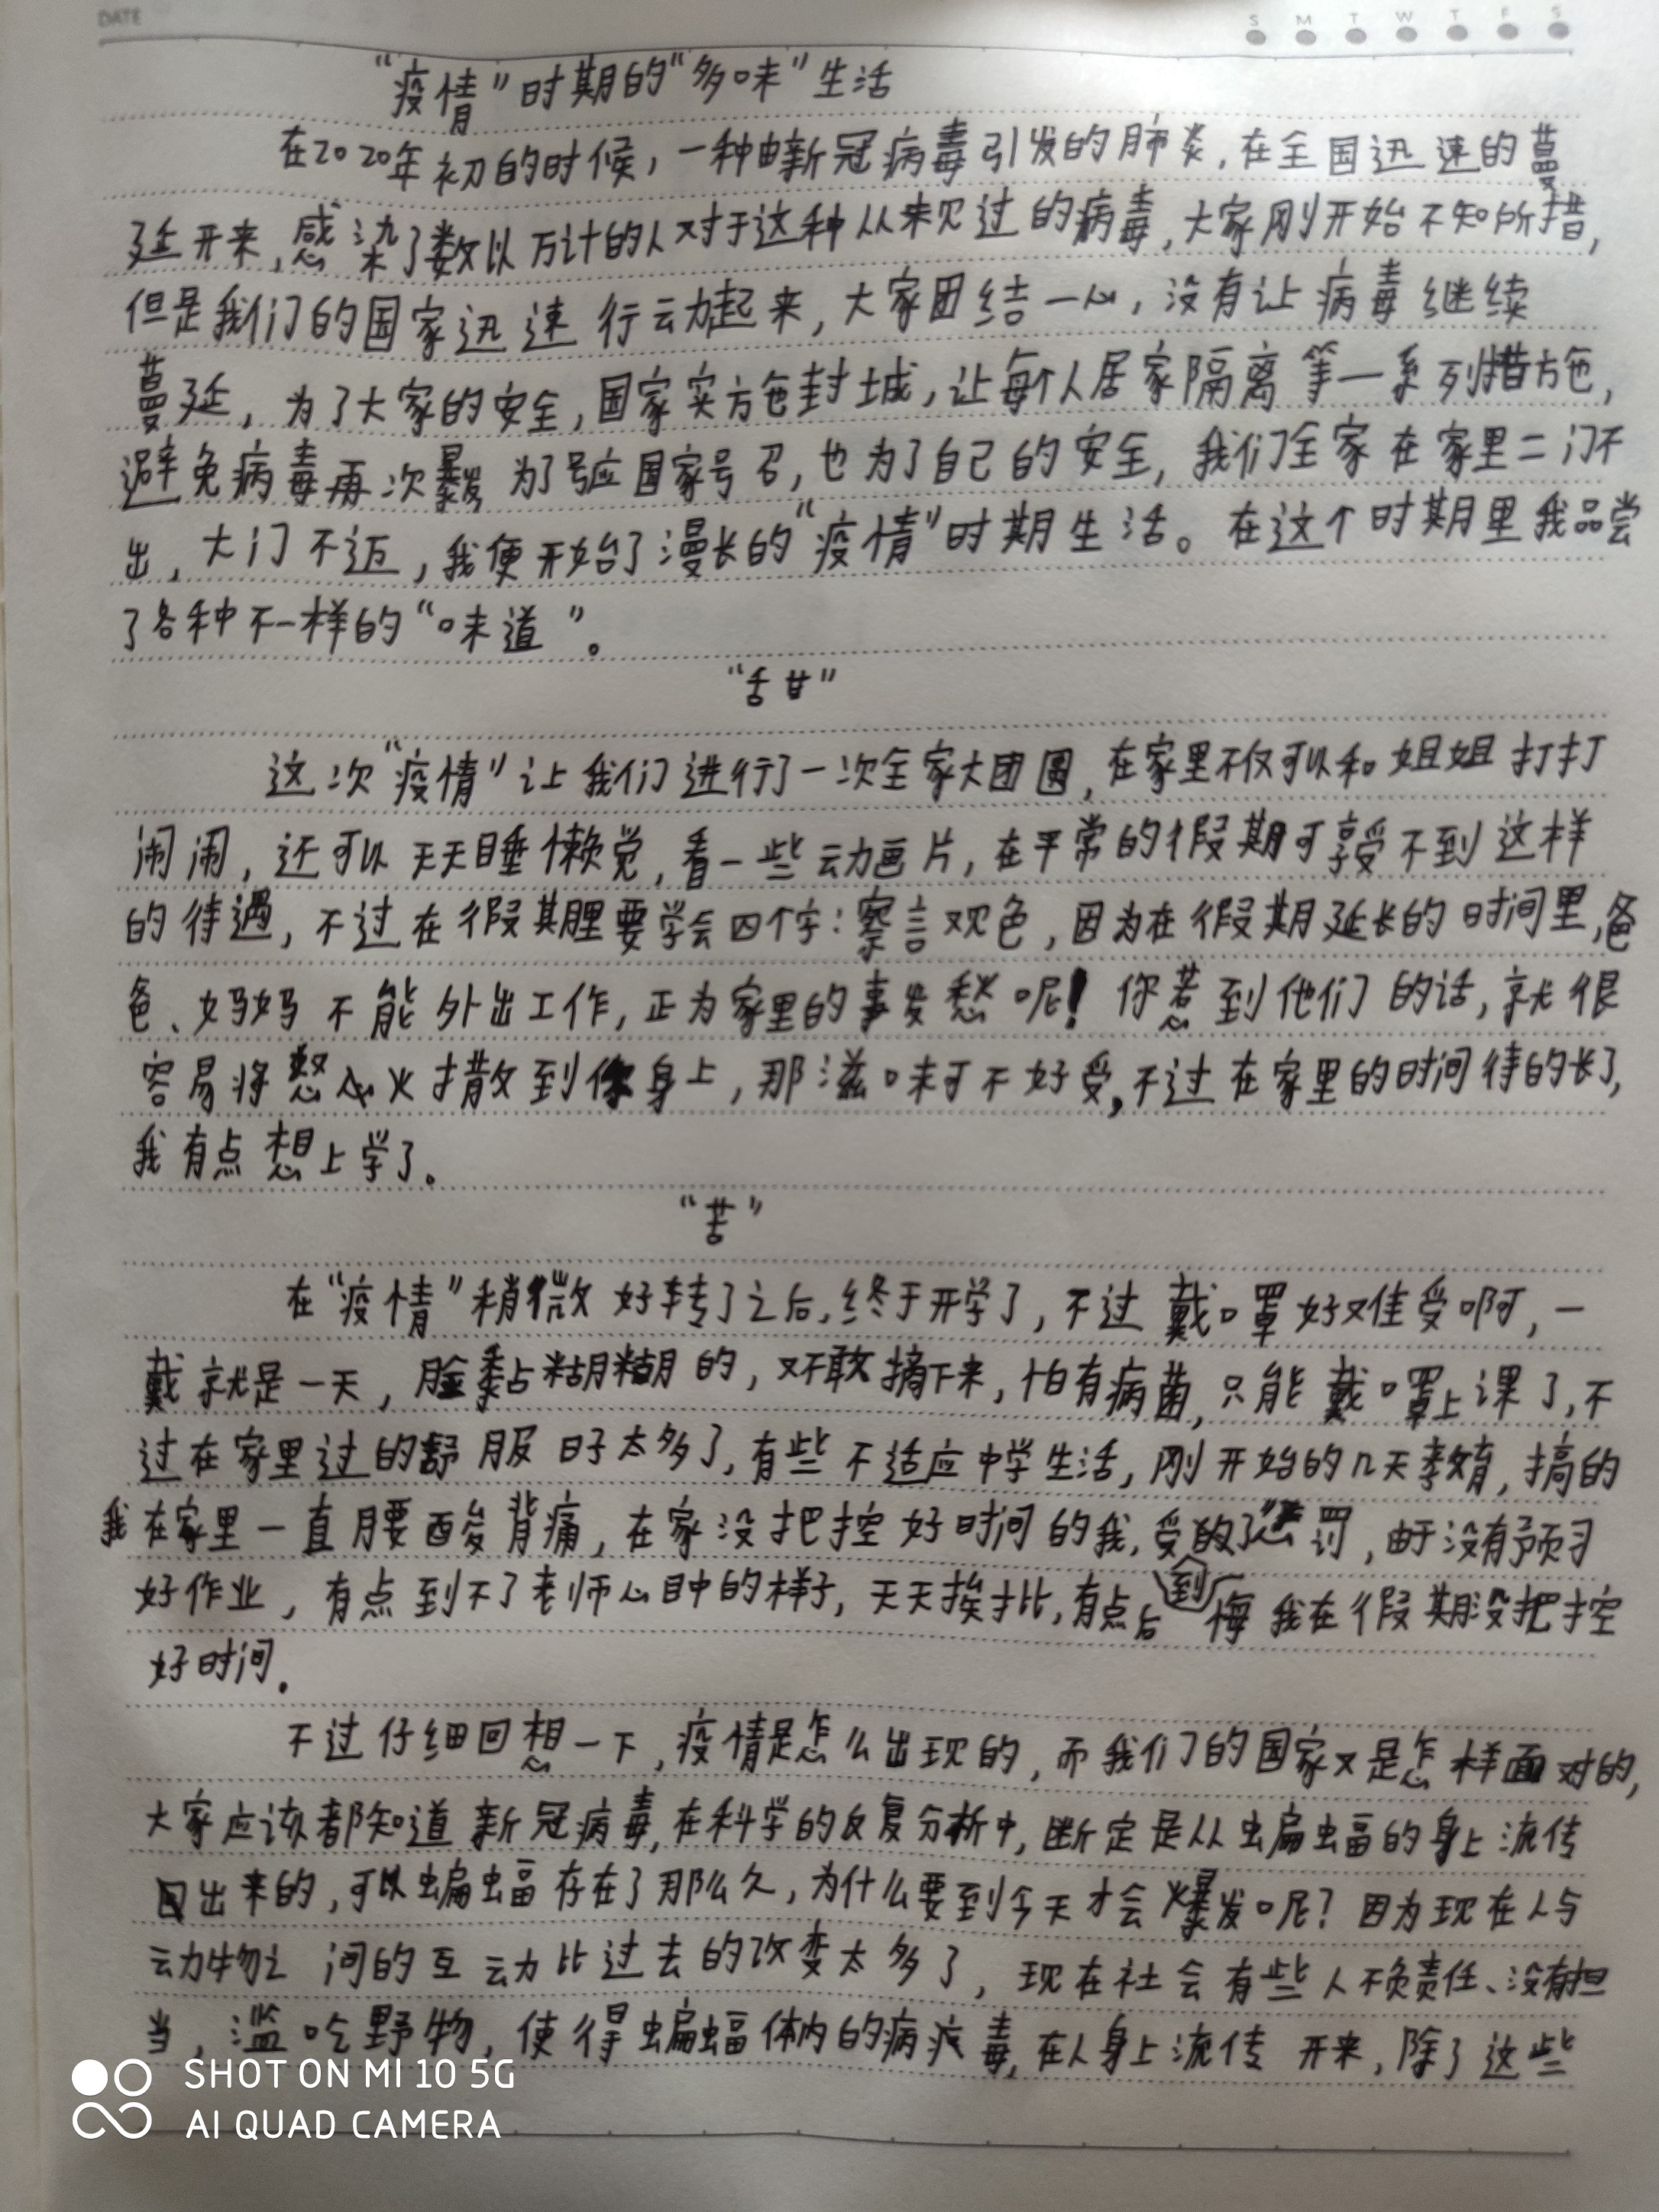 DATE
S M T W T F S
“疫情”时期的“多味”生活
在2020年初的时候，一种由新冠病毒引发的肺炎，在全国迅速的蔓
延开来，感染了数以万计的人对于这种从未见过的病毒，大家刚开始不知所措，
但是我们的国家迅速行动起来，大家团结一心，没有让病毒继续
蔓延，为了大家的安全，国家实施封城，让每个人居家隔离等一系列措施，
避免病毒再次暴发 为了号应国家号召，也为了自己的安全，我们全家在家里二门不
出，大门不迈，我便开始了漫长的“疫情”时期生活。在这个时期里我品尝
了各种不一样的“味道”。
“甜”
这次“疫情”让我们进行了一次全家大团圆，在家里不仅可以和姐姐打打
闹闹，还可以天天睡懒觉，看一些动画片，在平常的假期可享受不到这样
的待遇，不过在假期里要学会四个字：察言观色，因为在假期延长的时间里，爸
爸、妈妈不能外出工作，正为家里的事发愁呢！你惹到他们的话，就很
容易将怒火撒到你身上，那滋味可不好受，不过在家里的时间待的长了，
我有点想上学了。
“苦”
在“疫情”稍微好转了之后，终于开学了，不过戴口罩好难受啊，一
戴就是一天，脸黏糊糊的，又不敢摘下来，怕有病菌，只能戴口罩上课了，不
过在家里过的舒服日子太多了，有些不适应中学生活，刚开始的几天教育，搞的
我在家里一直腰酸背痛，在家没把控好时间的我，受到了惩罚，由于没有预习
好作业，有点到不了老师心目中的样子，天天挨批，有点后悔我在假期没把控
好时间。
不过仔细回想一下，疫情是怎么出现的，而我们的国家又是怎样面对的，
大家应该都知道新冠病毒，在科学的反复分析中，断定是从蝙蝠的身上流传
出来的，可以蝙蝠存在了那么久，为什么要到今天才会爆发呢？因为现在人与
动物之间的互动比过去的改变太多了，现在社会有些人不负责任、没有担
当，滥吃野物，使得蝙蝠体内的病疫毒，在人身上流传开来，除了这些
SHOT ON MI 10 5G
AI QUAD CAMERA